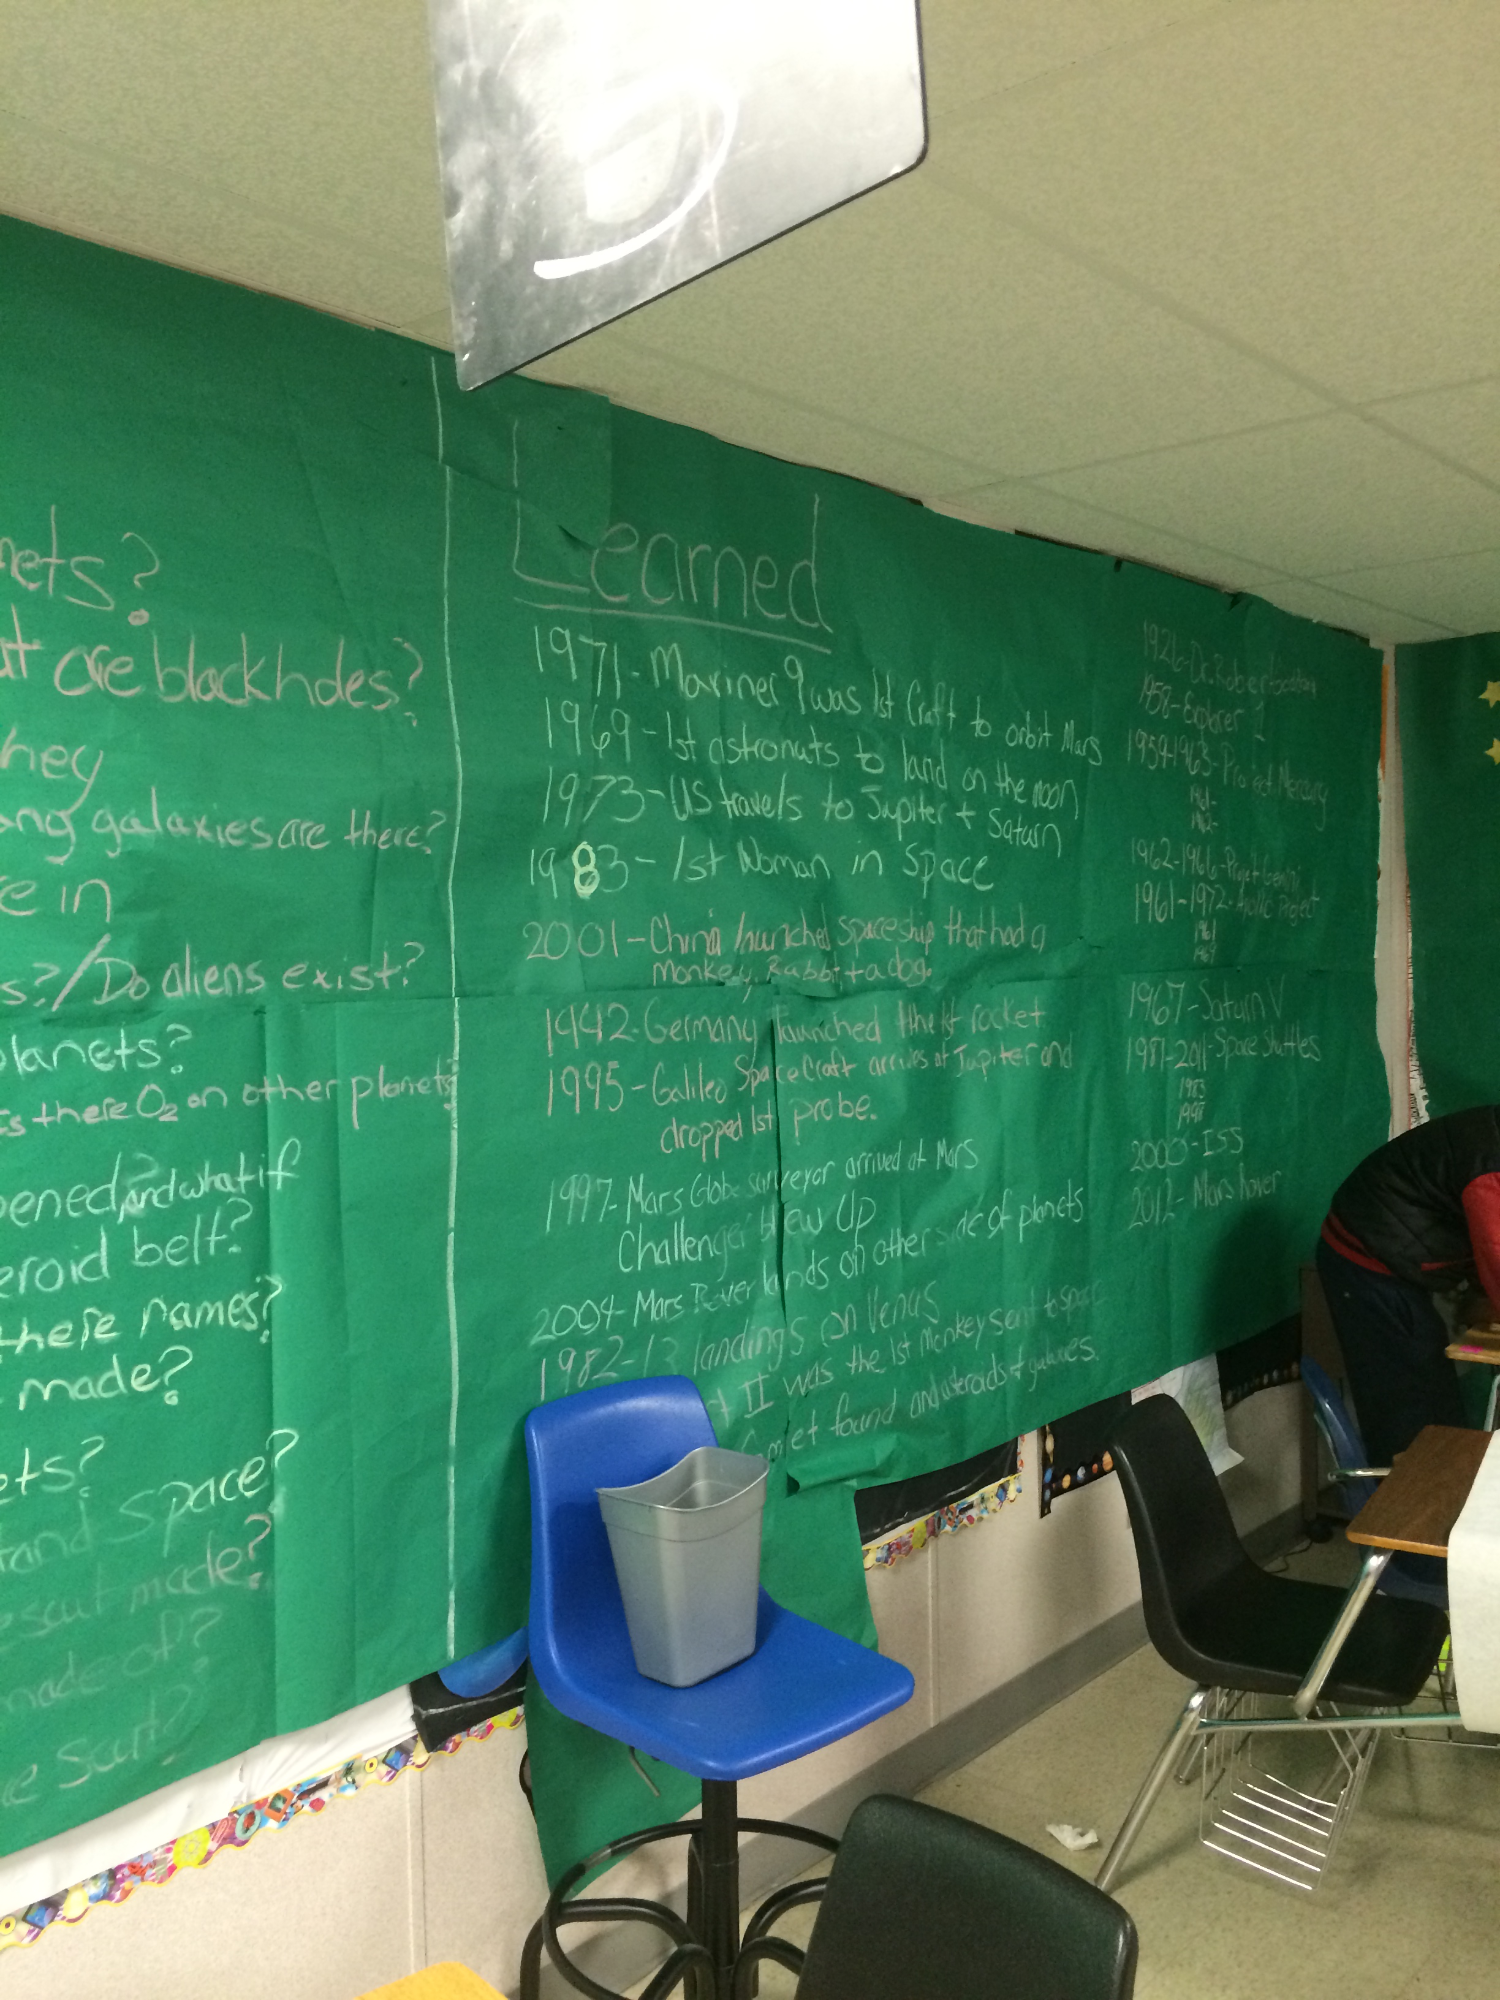 nets?
at are blackholes?
hey
any galaxies are there?
e in
s?/Do aliens exist?
planets?
is there O2 on other planets?
pened? and what if
eroid belt?
there names?
made?
ets?
tand space?
made?
made of?
Learned
1971-Mariner 9 was 1st Craft to orbit Mars
1969-1st astronuts to land on the moon
1973-US travels to Jupiter + Saturn
1983-1st Woman in Space
2001-China launched spaceship that had a
monkey, Rabbit + a dog.
1942-Germany launched the 1st rocket
1995-Galileo SpaceCraft arrives at Jupiter and
dropped 1st probe.
1997-Mars Globe surveyor arrived at Mars
Challenger blew Up
2004-Mars Rover lands on other side of planets
1982-13 landings on Venus
t II was the 1st Monkey sent to space
Comet found and asteroids of galaxies.
1926-Dr. Robert
1958-Explorer 1
1959-1963-Project Mercury
1961-
1962-
1962-1966-Project Gemini
1961-1972-Apollo Project
1967-Saturn V
1981-2011-Space Shuttles
1983
1998
2000-ISS
2012-Mars Rover